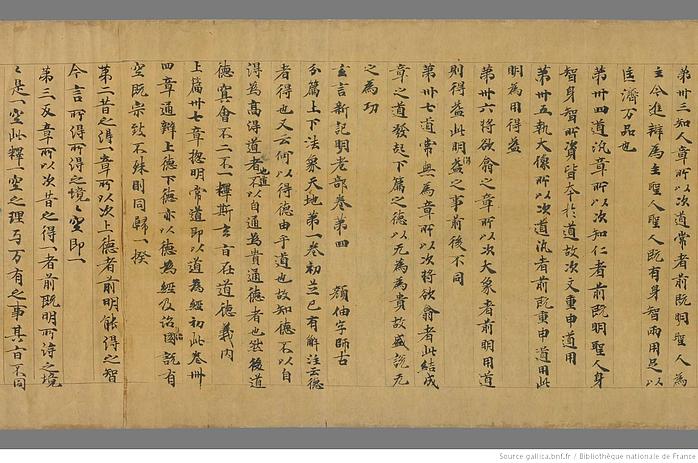 第卅三知人章所以次道常者前既明聖人為
主今進辯為主聖人聖人既有身智兩用足以
匡濟万品也
第卅四道汎章所以次知仁者前既明聖人身
智身智所資皆本於道故次文重申道用
第卅五執大像所以次道汎者前既重申道用此
明為用得益
第卅六將欲翕之章所以次大象者前明用道
則得益此明益之事前後不同
第卅七道常無為章所以次將欲翕者此結成
章之道發起下篇之德以无為為貴故盛說无
之為功
玄言新記明老部卷第四 顏伷字師古
分篇上下法象天地第一卷初兰已有解注云德
者得也又云何以得德由乎道也故知德不以自
得為高得道者不以自通為貴通德者也然後道
德冥會不二不一標斯玄旨在道德義內
上篇卅七章揔明常道即以道為經初此卷卌
四章通辯上德下德亦以德為經及治國說有
空既宗致不殊則同歸一揆
第二昔之得一章所以次上德者前明能得之智
今言所得所得之境々空即一
第三反章所以次昔之得一者前既明所得之境
々是一空此釋一空之理与万有之事其旨不同
Source gallica.bnf.fr / Bibliothèque nationale de France